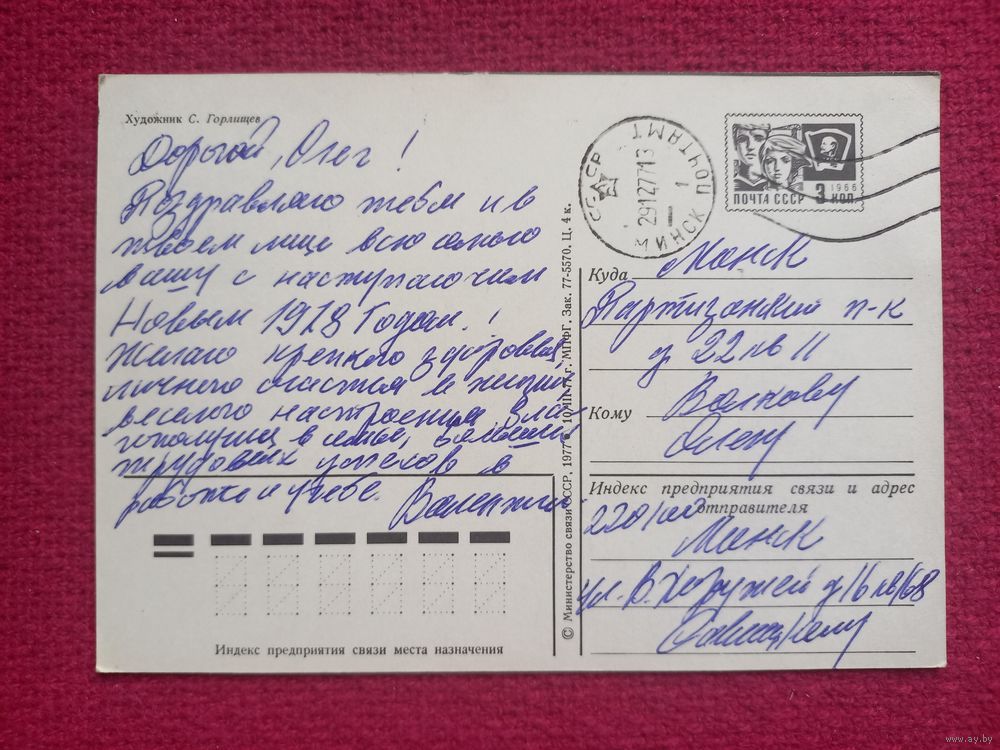 Художник С. Горлищев
Дорогой, Олег!
Поздравляю тебя и в
твоем лице всю семью
вашу с наступающим
Новым 1978 Годом.!
Желаю крепкого здоровья,
личного счастья в жизни,
веселого настроения, бла-
гополучия в семье,
трудовых успехов в
работе и учебе.
Валентин
Индекс предприятия связи места назначения
© Министерство связи СССР, 1977 г. МПФГ. Зак. 77-5570. Ц. 4 к.
СССР
29127713
МИНСК ПОЧТАМТ
1
1966
ПОЧТА СССР 3 КОП
Куда Минск
Партизанский п-к
д 22 кв 11
Кому Волкову
Олегу
Индекс предприятия связи и адрес
отправителя
220100
Минск
ул. В. Хоружей д 16 кв 68
www.ay.by